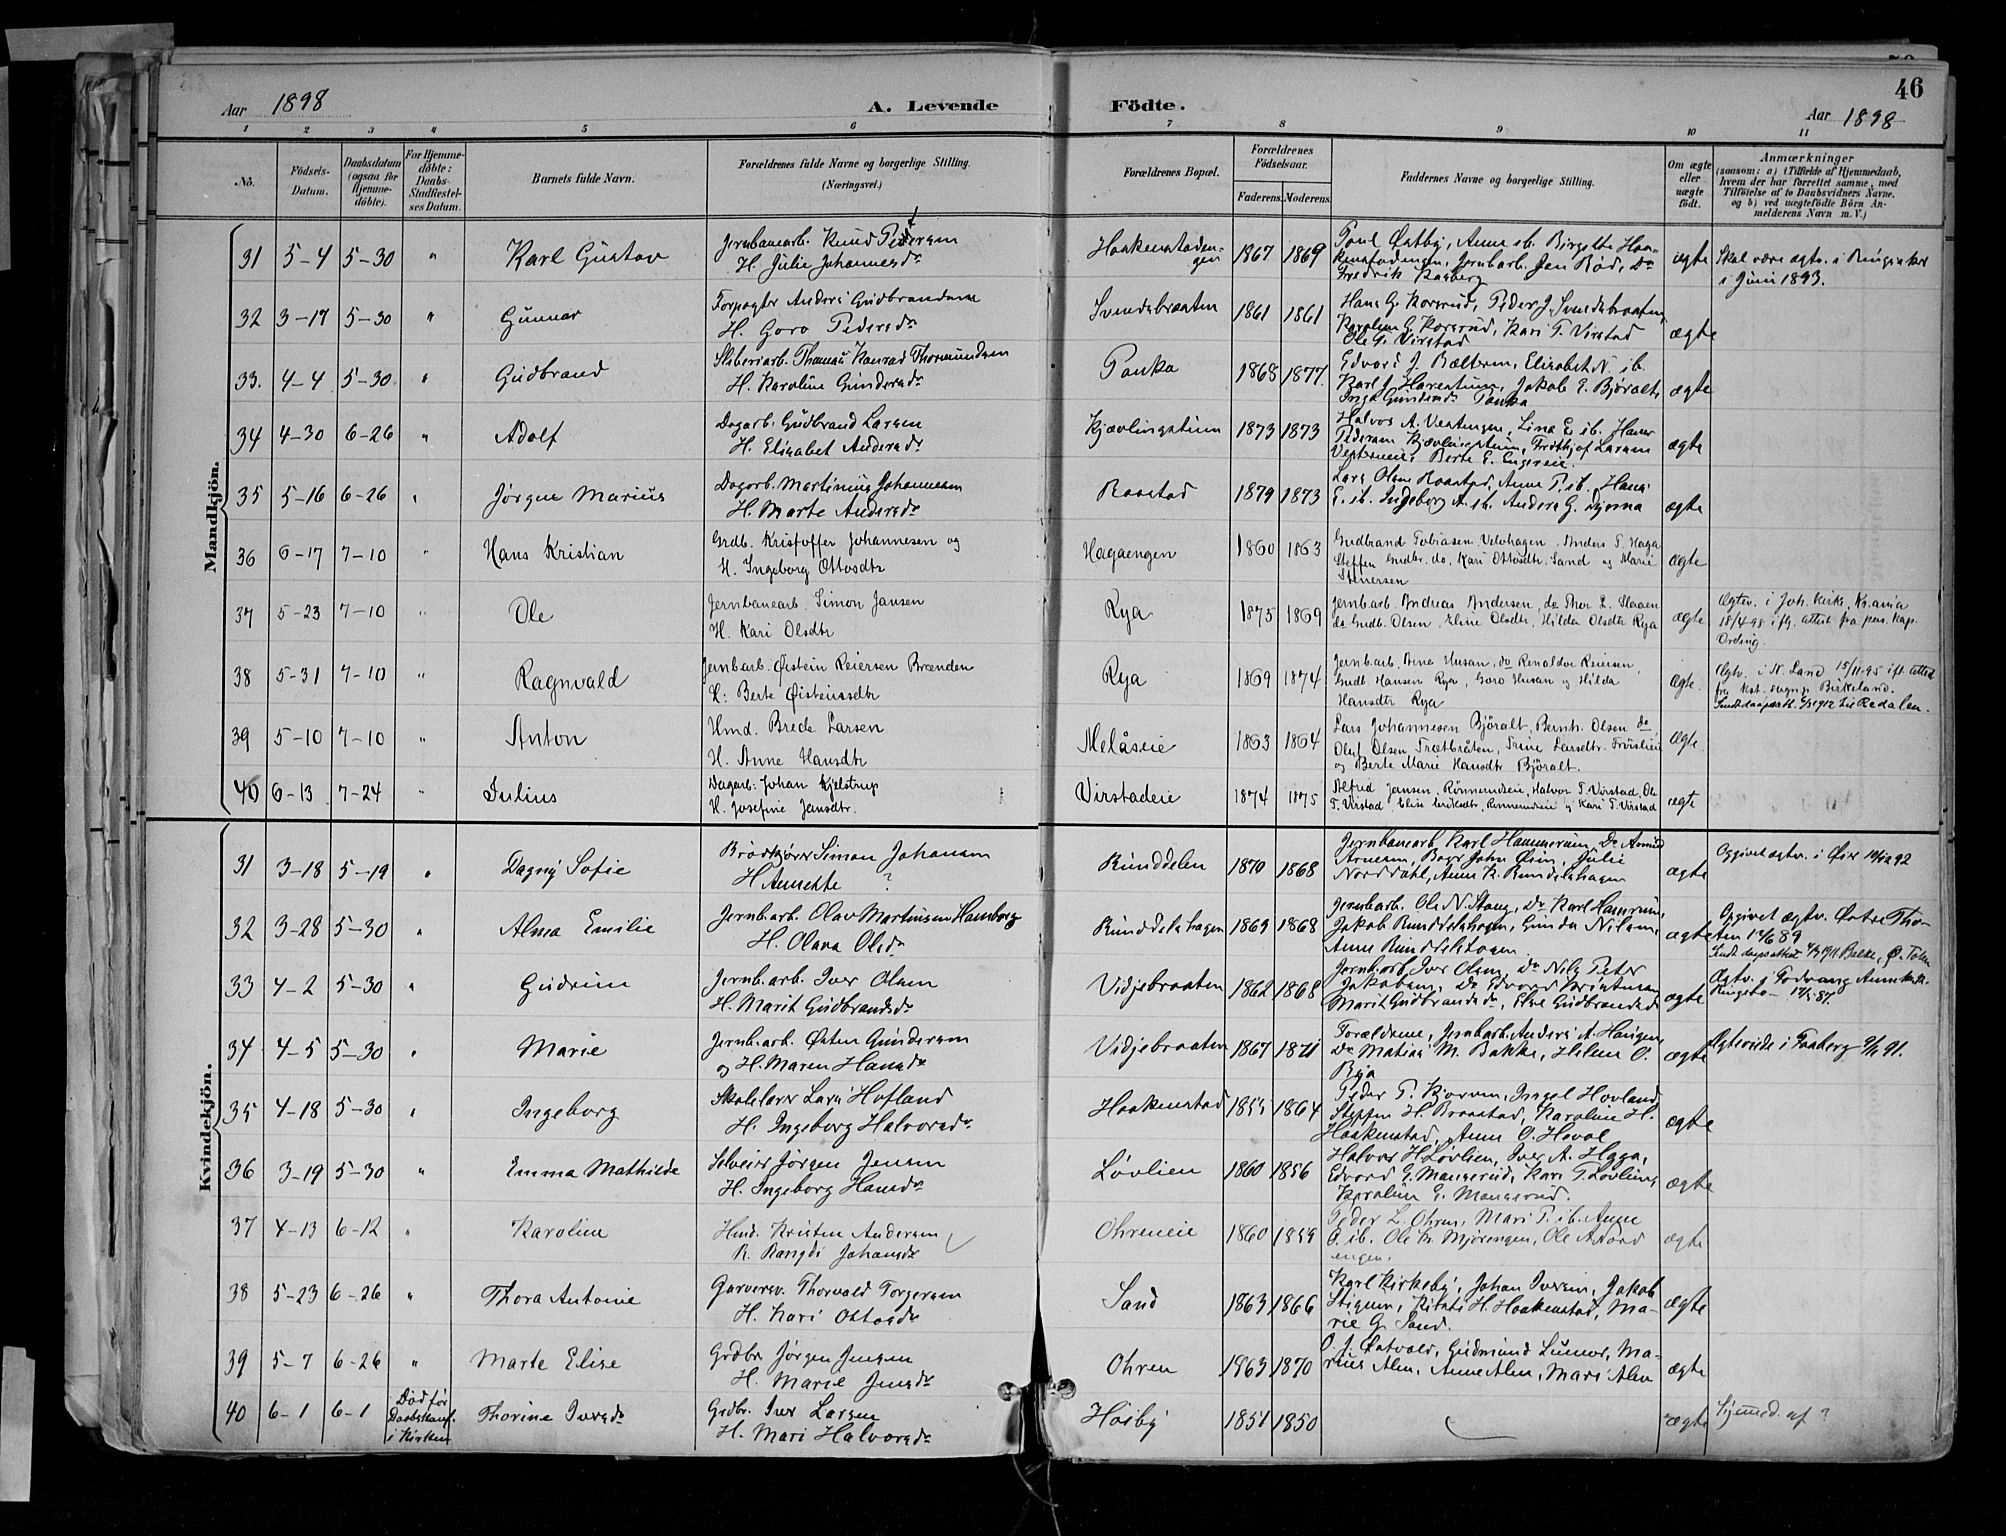 46
Aar 1898
A. Levende
Födte.
Aar 1898
1 2 3 4 5 6 7 8 9 10 11
No.
Födsels-
Datum.
Daabsdatum
(ogsaa for
Hjemme-
döbte).
For Hjemme-
döbte:
Daabs-
Stadfæstel-
ses Datum.
Barnets fulde Navn.
Forældrenes fulde Navne og borgerlige Stilling.
(Næringsvei.)
Forældrenes Bopæl.
Forældrenes
Födselsaar.
Faderens. Moderens.
Faddernes Navne og borgerlige Stilling.
Om ægte
eller
uægte
födt.
Anmærkninger
(saasom: a) i Tilfælde af Hjemmedaab,
hvem der har forrettet samme, med
Tilföielse af to Daabsvidners Navne,
og b) ved uægtefödte Börn An-
melderens Navn m. V.)
Mandkjön.
31 5-4 5-30 " Karl Gustav
Jernbanearb. Knud Pedersen
H. Julie Johannesdr
Haakenstaden-
gen
1867 1869
Poul Østby, Anne ib. Birgitte Haa-
kenstadengen, Jernbarb. Jan Röd, Do
Fredrik Kasberg
ægte
Skal være ægtv. i Ringsaker
i Juni 1893.
32 3-17 5-30 " Gunnar
Forpagter Anders Gudbrandsen
H. Goro Pedersdr
Svendsbraaten 1861 1861
Hans G. Korsrud, Peder J. Svendsbraaten,
Karoline G. Korsrud, Kari T. Virstad
Ole G. Virstad
ægte
33. 4-4 5-30 " Gudbrand
Sliberiarb. Thomas Konrad Thormundsen
H. Karoline Gundersdr
Panka 1868 1877
Edvard J. Bælterm, Elisabet N. ib.
Karl J. Harestuen, Jakob E. Björalt,
Inga Gundersdr Panka
ægte
34 4-30 6-26 " Adolf
Dagarb. Gudbrand Larsen
H. Elisabet Andersdr
Kjævlingstuen 1873 1873
Halvor A. Vestengen, Lina E. ib. Hans
Pedersen Kjævlingstuen, Fridtjof Larsen
Vesterneie, Berte E. Engereie.
ægte
35 5-16 6-26 " Jørgen Marius
Dagarb. Martinius Johannesen
H. Marte Andersdr
Raastad 1879 1873
Lars Olsen Raastad, Anne P. ib., Hans
E. ib. Ingeborg A. ib. Anders G. Djorna
ægte
36 6-17 7-10 " Hans Kristian
Grdb. Kristoffer Johannesen og
H. Ingeborg Ottosdtr
Hagaengen 1860 1863
Gudbrand Tobiasen Velohagen, Anders T. Haga
Steffen Gudbr. do, Kari Ottosdtr. Sand og Marie
Stenersen
ægte
37 5-23 7-10 " Ole
Jernbanearb. Simon Jansen
H. Kari Olsdtr
Rya 1875 1869
Jernb.arb. Andreas Andersen, do Thor L. Haaen
do Gudb. Olsen, Eline Olsdtr, Hilda Olsdtr Rya
ægte
Ægtev. i Joh. kirke, Kr.ania
18/4 98 ifg. attest fra pers. kap.
Ording.
38 5-31 7-10 " Ragnvald
Jernbarb. Øistein Reiersen Brænden
H. Berte Øisteinsdtr
Rya 1869 1874
Jernb.arb. Arne Husan, do Renaldor Reiersen,
Gudb. Hansen Rya, Goro Husan og Hilda
Hansdtr Rya
ægte.
Ægtv. i N. Land 15/11-95 ifl. attest
fra kst. sogn.p. Birkeland.
39 5-10 7-10 " Anton
Hmd. Brede Larsen
H. Anne Hansdtr
Melåseie 1863 1864
Lars Johannesen Björalt, Bernh. Olsen do,
Oluf Olsen Trætbråten, Trine Larsdtr. Fröislie
og Berte Marie Hansdtr Björalt.
ægte
40 6-13 7-24 " Julius
Dagarb. Johan Kjelstrup
H. Josefine Jansdtr.
Virstadeie 1874 1875
Alfred Jansen, Rönnerudeie, Halvor T. Virstad, Ole
T. Virstad Elise Eriksdtr, Rönnerudeie og Kari T. Virstad
ægte
Kvindekjön.
31 3-18 5-19 " Dagny Sofie
Brödkjörer Simon Johansen
H. Annette ?
Runddelen 1870 1868
Jernbanearb. Karl Hammerum, Do Amund
Arnesen, Bager John Øien, Julie
Norddahl, Anne K. Runddelshagen
ægte
Opgivet ægtv. i Øier 10/12 92
32 3-28 5-30 " Alma Emilie
Jernb.arb. Olav Martinsen Hamborg
H. Olava Olsdr
Runddelshagen 1869 1868
Jernb.arb. Ole N. Stang, Do Karl Hamrum,
Jakob Runddelshagen, Gunda Nilsen,
Anne Runddelshagen
ægte
Opgivet ægtv. Østre Tho-
ten 12/6 89
33 4-2 5-30 " Gudrun
Jernb.arb. Iver Olsen
H. Marit Gudbrandsdr
Vidjebraaten 1862 1868
Jernb.arb. Iver Olsen, Do Nils Peter
Jakobsen, Do Edvard Kristiansen
Marit Gudbrandsdr, Eline Gudbrandsdr
ægte
Ægtv. i Fodvang Anneks.k.
Ringebo 17/5 87.
34 4-5 5-30 " Marie
Jernb.arb. Østen Gundersen
og H. Maren Hansdr
Vidjebraaten 1867 1871
Forældrene, Jernb.arb. Anders A. Haugen,
Do Matias M. Bakke, Helene O.
Rya
ægte
Ægteviede i Faaberg 9/11 91.
35 4-18 5-30 " Ingeborg
Skolelærer Lars Hofland
H. Ingeborg Halvorsdr
Haakenstad 1855 1864
Peder P. Kjorven, Ingel Hovland,
Steffen H. Braastad, Karoline H.
Haakenstad, Anne O. Hoval
ægte
36 3-19 5-30 " Emma Mathilde
Selveier Jørgen Jensen
H. Ingeborg Hansdr
Løvlien 1860 1856
Halvor H. Løvlien, Iver A. Haga,
Edvard G. Mangerud, Kari T. Løvlien,
Karoline E. Mangerud.
ægte
37 4-13 6-12 " Karoline
Hmd. Kristen Andersen
K. Rangdi Johansdr
Ohreneie 1860 1859
Peder L. Ohren, Mari P. ib. Anne
O. ib. Ole Kr. Mjörengen, Ole
engen.
ægte
38 5-23 6-26 " Thora Antonie
Garversv. Thorvald Torgersen
H. Kari Ottosdr
Sand 1863 1866
Karl Kirkeby, Johan Iversen, Jakob
Stigum, H. Haakenstad, Ma-
rie G. Sand.
ægte
39 5-7 6-26 " Marte Elise
Grdbr. Jörgen Jensen
H. Marie Jensdr
Ohren 1863 1870
O. J. Østvold, Gudmund Lunner, Ma-
rius Alm, Anne Alm, Mari Alm
ægte
40 6-1 6-1
Död för
Daabskunf.
i Kirken
Thorine Iversdr
Grdbr. Iver Larsen
H. Mari Halvorsdr
Høiby 1851 1850
"ægte
Hjemmed. af ?